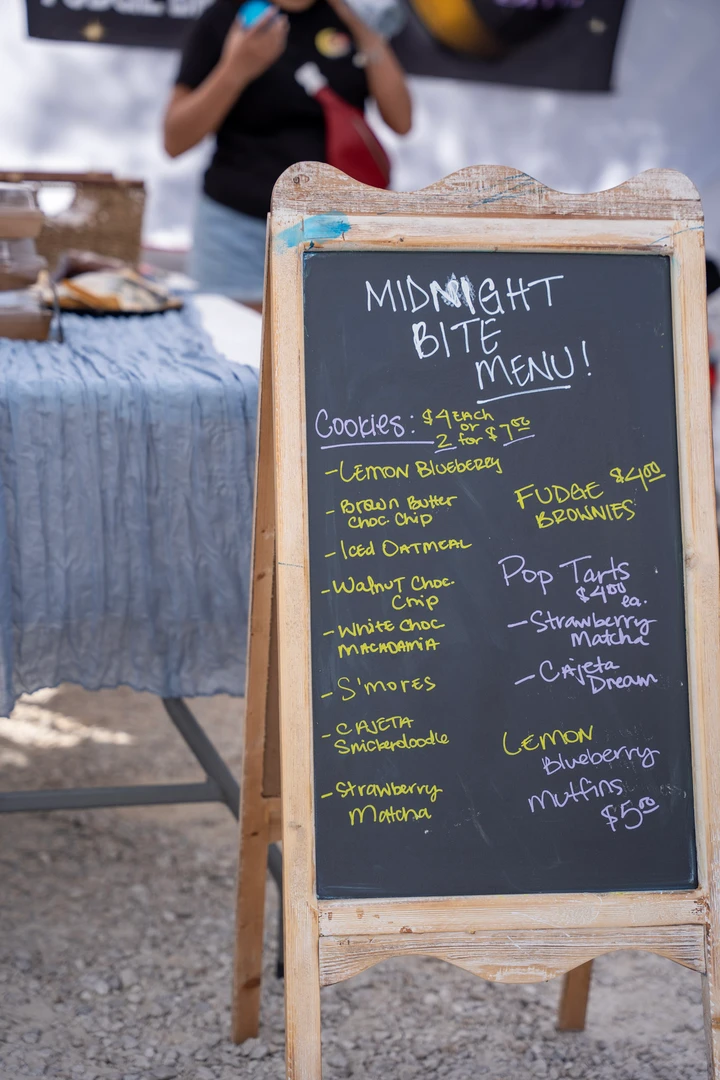 MIDNIGHT
BITE
MENU!
Cookies: $4 EACH
or
2 for $7.00
- LEMON BLUEBERRY
- Brown Butter
Choc. Chip
- ICED OATMEAL
- Walnut Choc.
Chip
- White Choc
MACADAMIA
- S'mores
- CAJETA
Snickerdoodle
- Strawberry
Matcha
FUDGE $4.00
BROWNIES
Pop Tarts
$4.00
ea.
- Strawberry
Matcha
- Cajeta
Dream
LEMON
Blueberry
Muffins
$5.00